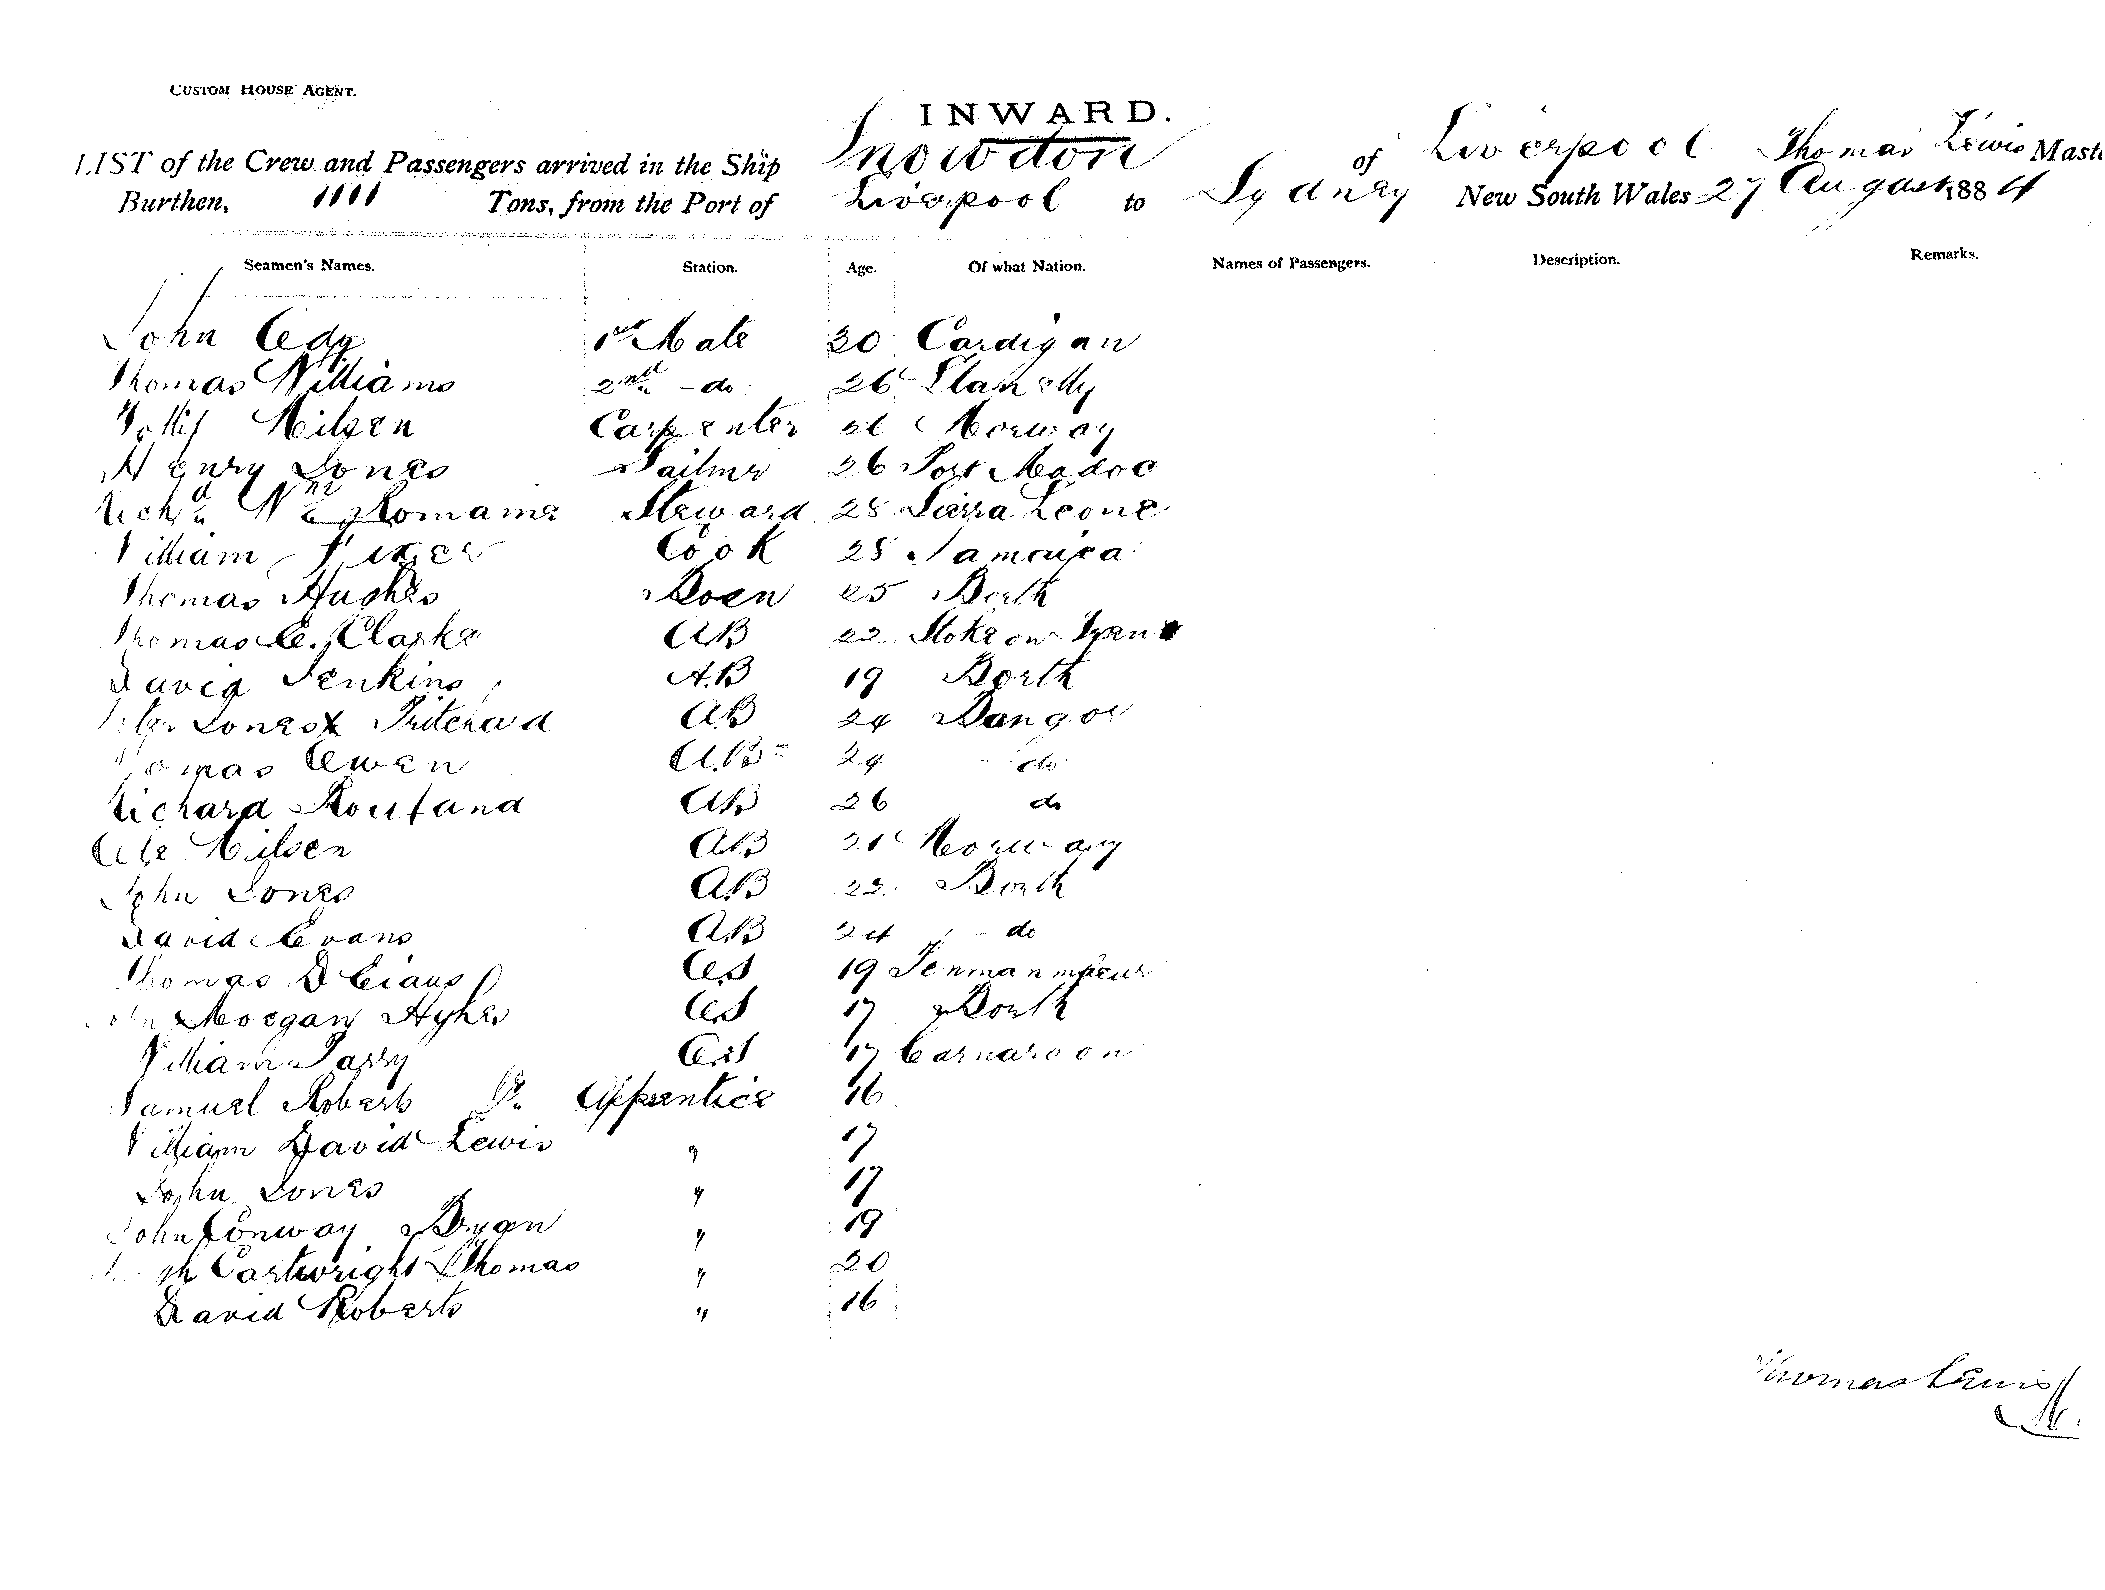 CUSTOM HOUSE AGENT.
INWARD.
LIST of the Crew and Passengers arrived in the Ship Snowdon of Liverpool Thomas Lewis Maste
Burthen, 1111 Tons, from the Port of Liverpool to Sydney New South Wales 27 August 1884
Seamen's Names. Station. Age. Of what Nation. Names of Passengers. Description. Remarks.
John 1st Mate 30 Cardigan
Thomas Williams 2nd do 26 Llanelly
Nilsen Carpenter Norway
Henry Jones Sailmr 26 Port Madoc
Richd Steward 28 Sierra Leone
William Cook 28 Jamaica
Thomas Hughes Bosn 25 Borth
Thomas E. Clarke AB 22 Stoke on Trent
David Jenkins A.B 19 Borth
Peter Jones Pritchard AB 24 Bangor
Thomas Owen A.B 24 do
Richard Rowland AB 26 do
Ole Nilsen AB 21 Norway
John Jones A.B 22 Borth
David Evans A.B 24 do
Thomas D Evans OS 19
John Morgan Hughes OS 17 Borth
William Parry OS 17 Carnarvon
Samuel Roberts Apprentice 16
William David Lewis " 17
John Jones " 17
John Conway Bryan " 19
Cartwright Thomas " 20
David Roberts " 16
Thomas Lewis